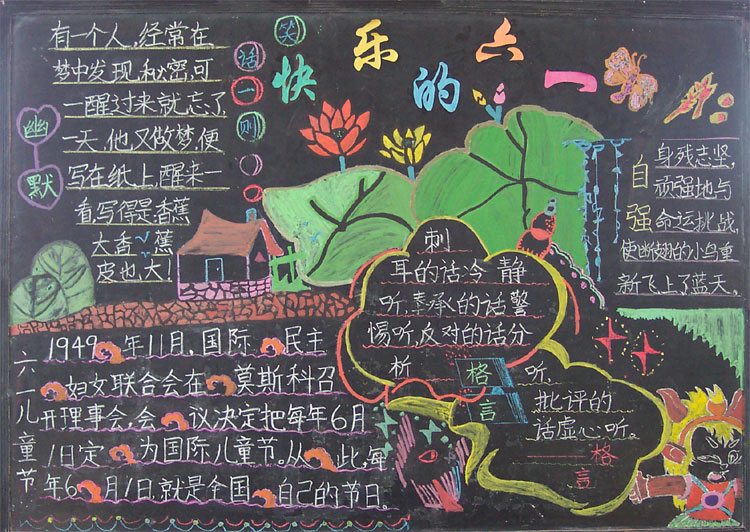 快乐的六一
笑话一则
幽默
有一个人,经常在
梦中发现秘密,可
一醒过来就忘了
一天,他又做梦,便
写在纸上,醒来一
看,写得是香蕉
大香蕉
皮也大!
自强
身残志坚,
顽强地与
命运挑战,
使断翅的小鸟重
新飞上了蓝天。
刺
耳的话冷静
听,奉承的话警
惕听,反对的话分
析听,
批评的
话虚心听。
——格
言
格
言
六一儿童节
1949年11月,国际民主
妇女联合会在莫斯科召
开理事会,会议决定把每年6月
1日定为国际儿童节。从此,每
年6月1日,就是全国自己的节日。